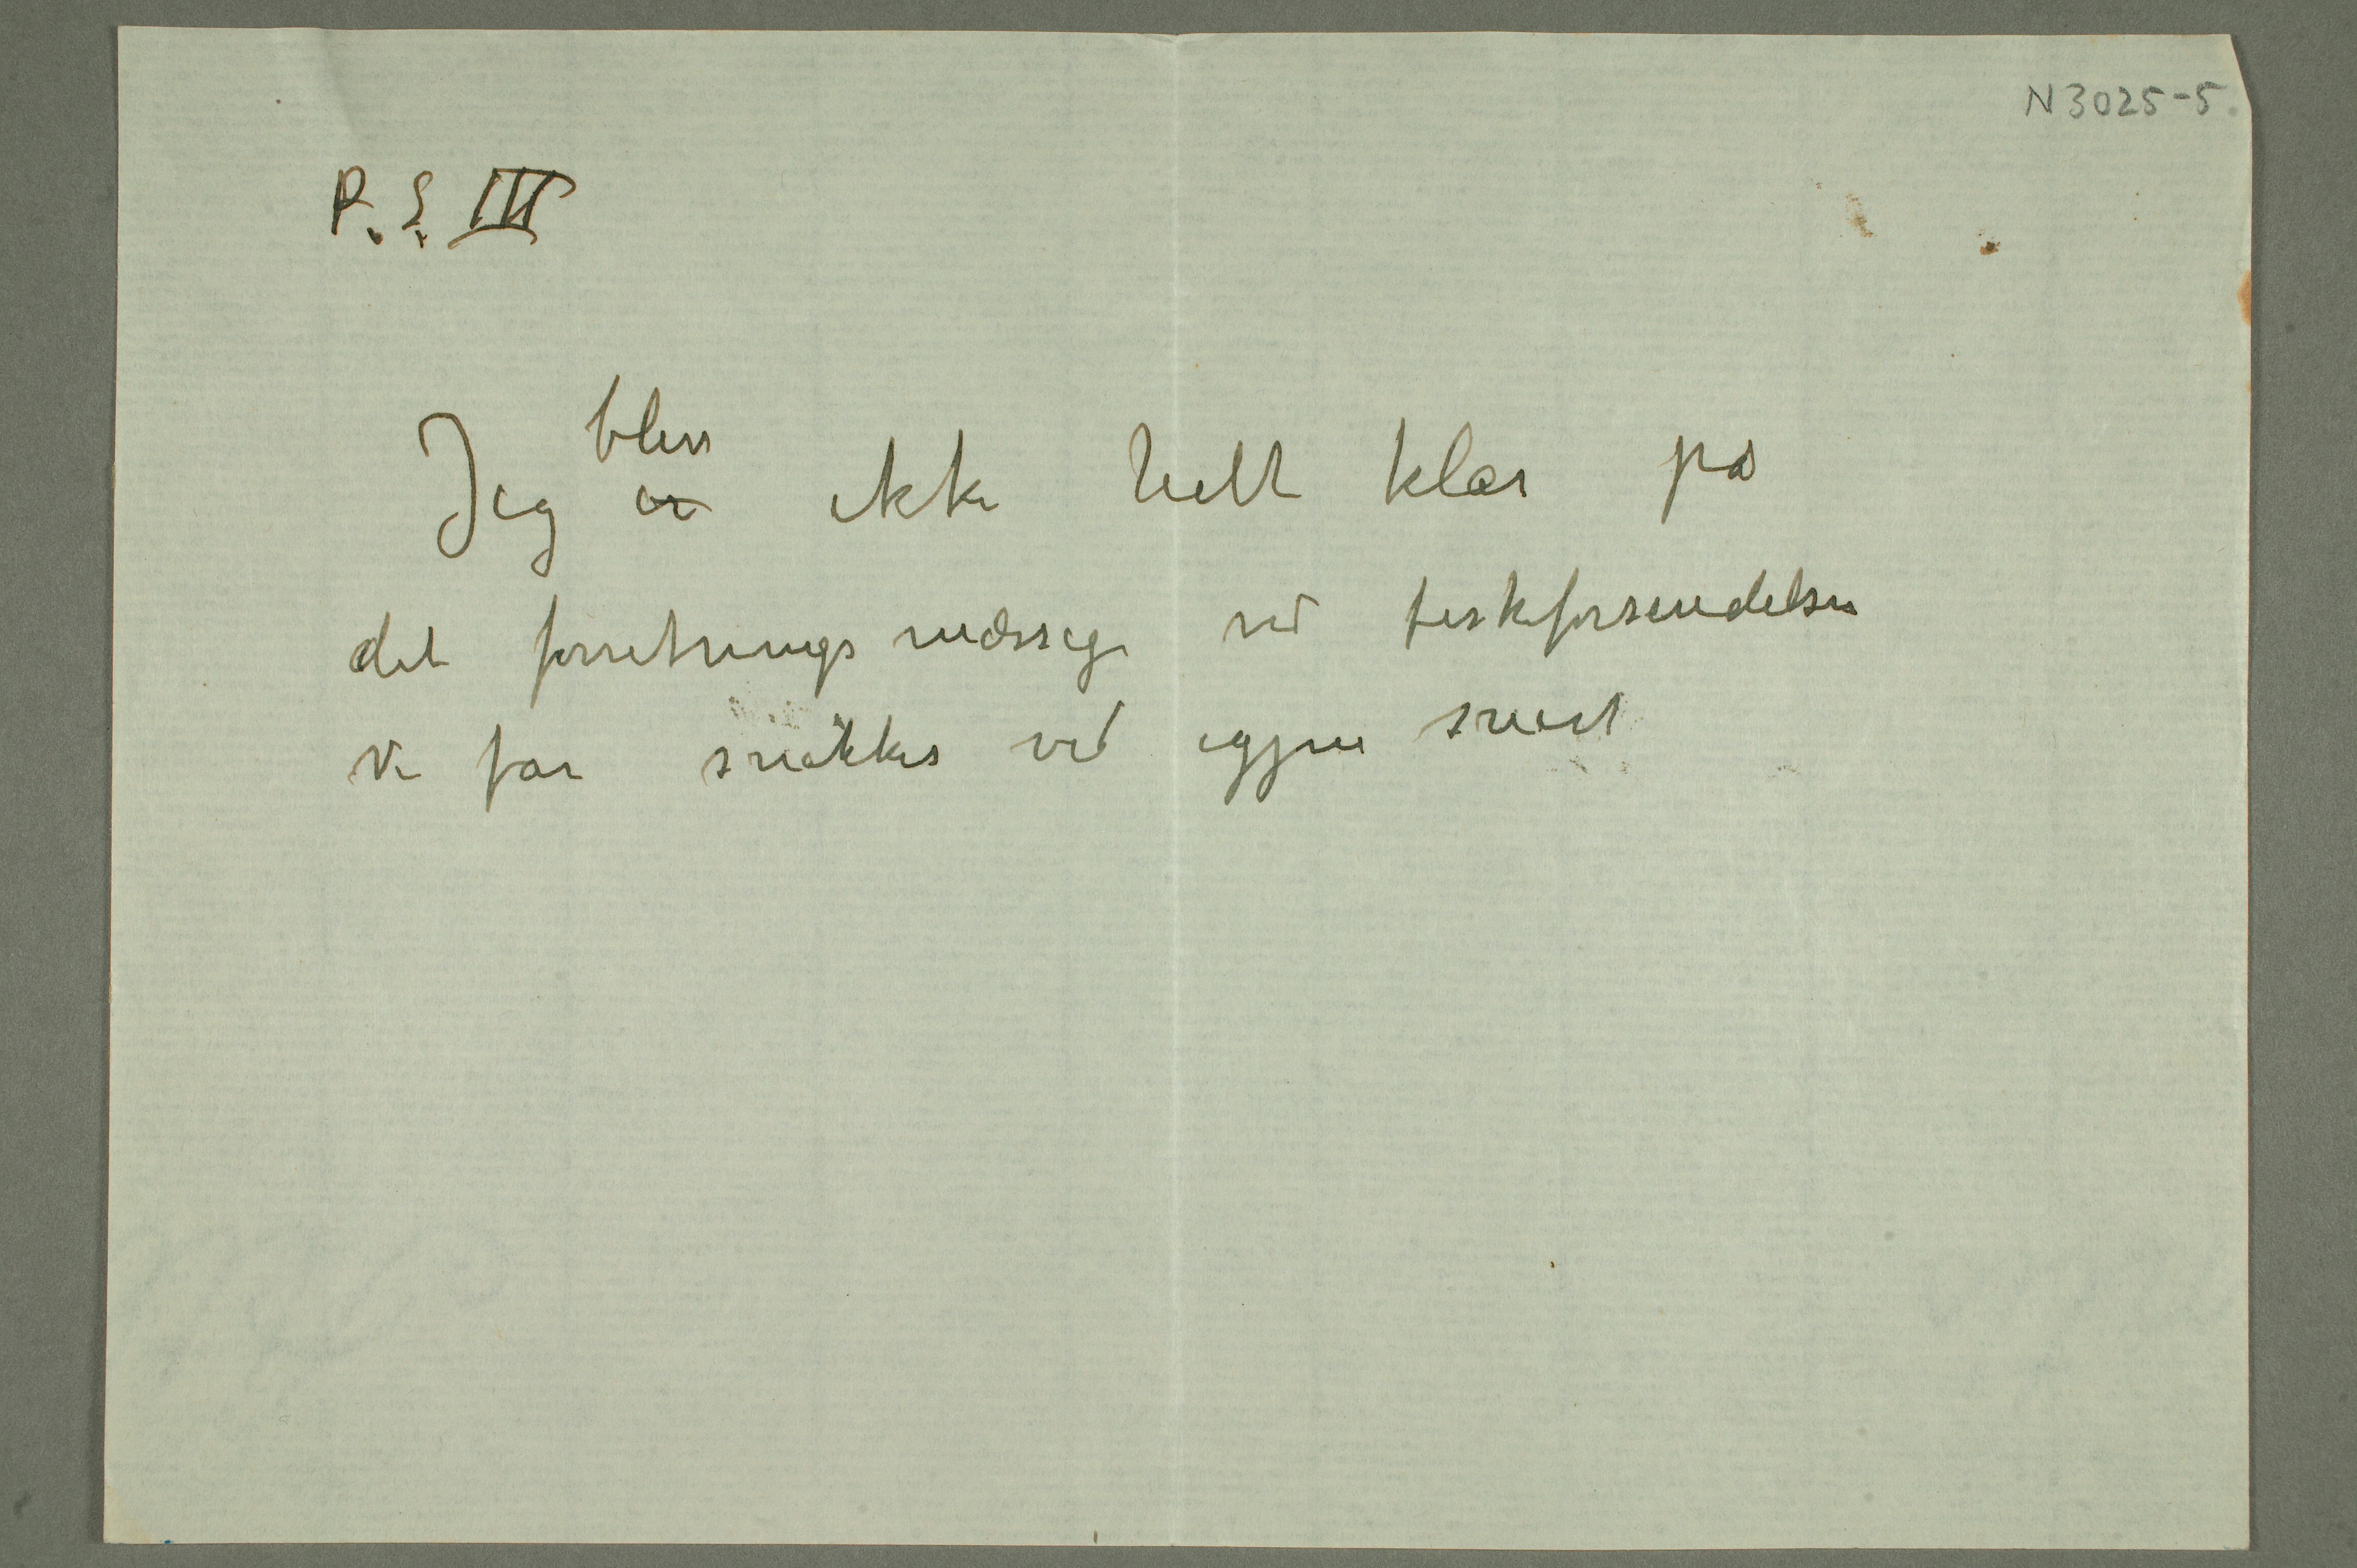 N 3025-5.
P.S. III
Jeg er blev ikke helt klar på
det forretningsmæssige ved fiskeforsendelsen
Vi får snakkes ved igjen snart